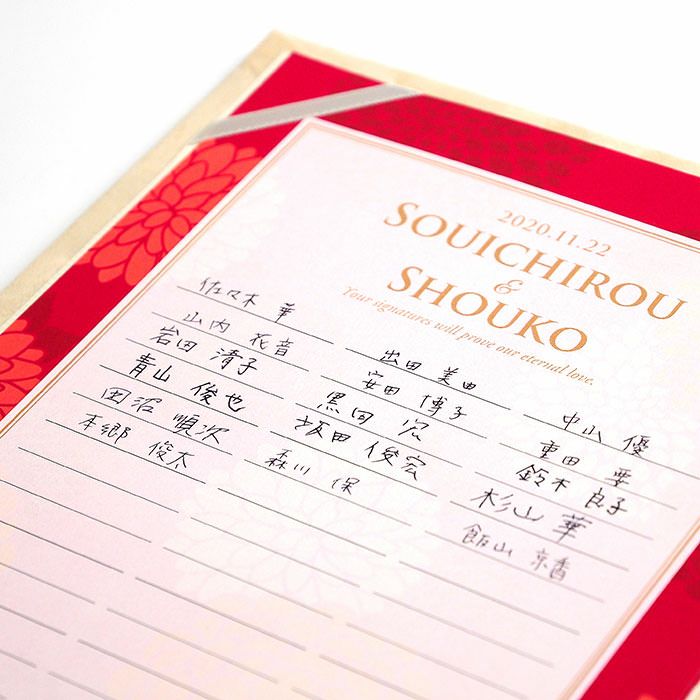 2020.11.22
SOUICHIROU
&
SHOUKO
Your signatures will prove our eternal love.
佐々木 華
山内 花音
岩田 清子
青山 俊也
田沼 順次
本郷 俊太
出田 美由
安田 博子
黒田 宏
坂田 俊宏
森川 保
中山 優
重田 要
鈴木 良子
杉山 華
飯山 京香